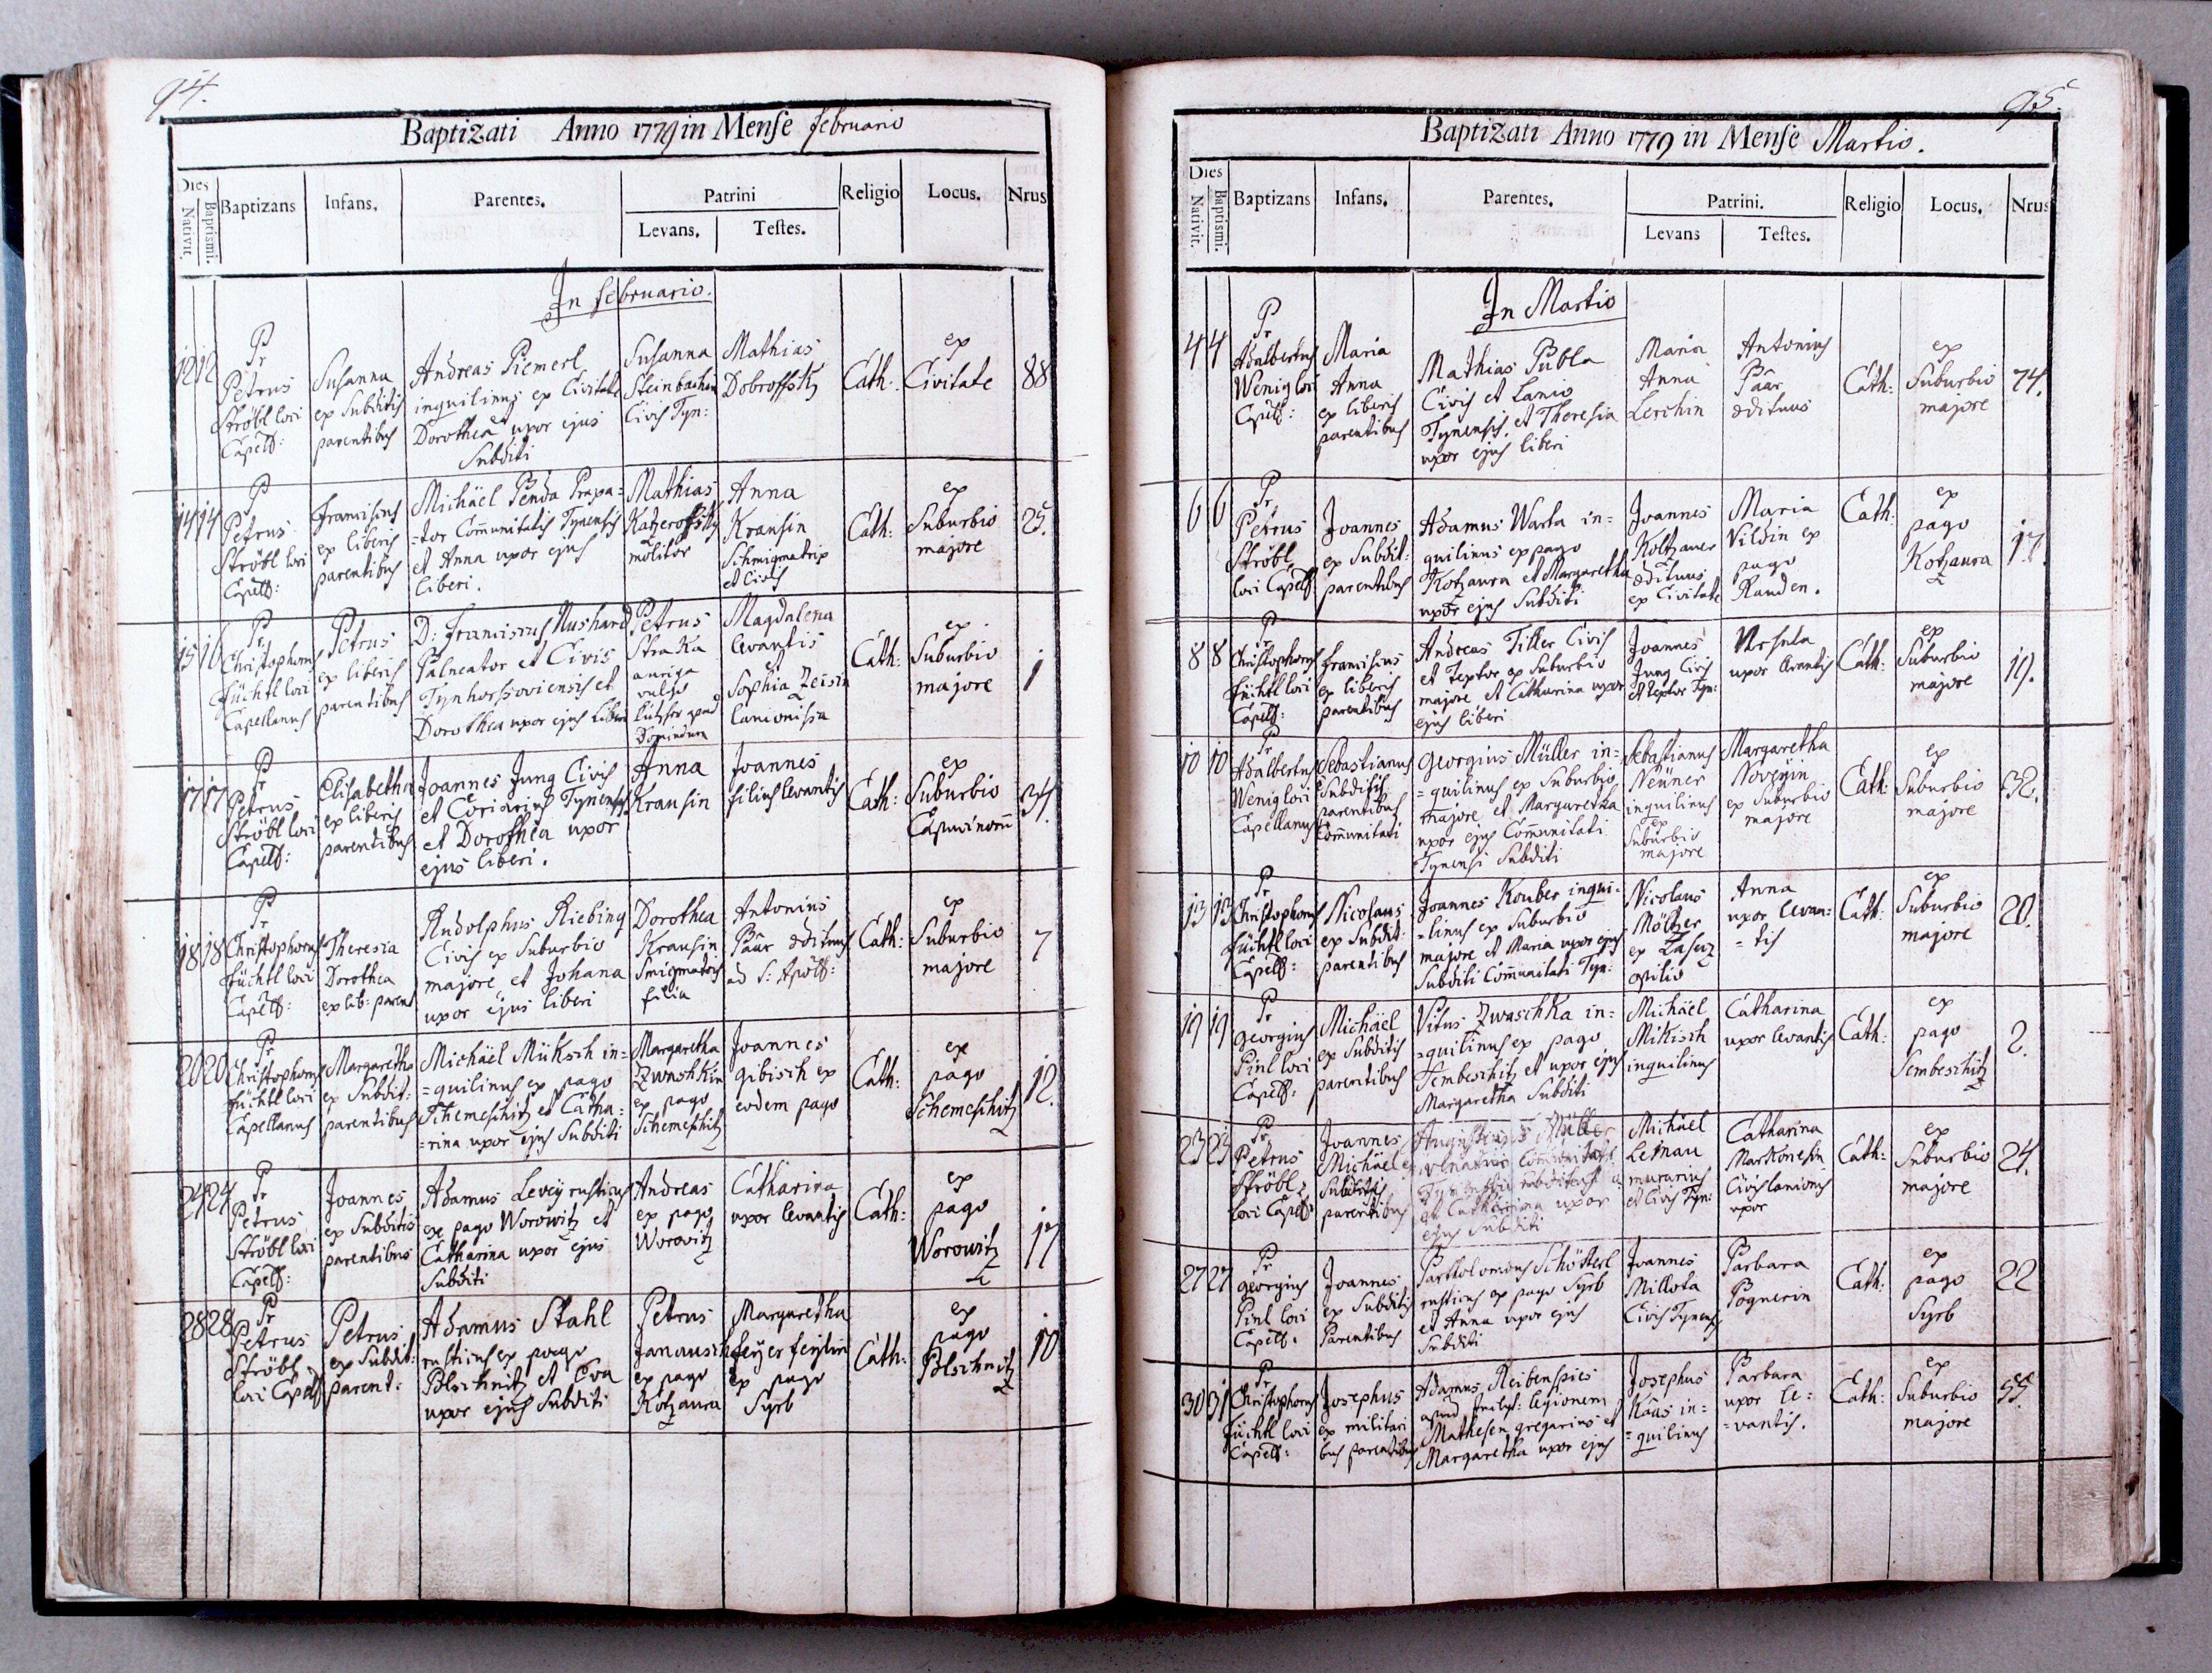 94.
Baptizati Anno 1779 in Mense februario
Dies
Nativit.
Baptismi.
Baptizans
Infans.
Parentes.
Patrini
Levans.
Testes.
Religio
Locus.
Nrus
In februario.
12
12
P
Pr
Petrus
Ströbl loci
Capell:
Susanna
ex Subditis
parentibus
Andreas Piemerl
inquilinus ex Civitate
Dorothea et uxor ejus
Subditi
Susanna
Steinbachin
Civis Tyn:
Mathias
Dobroffsky
Cath:
ex
Civitate
88
14
14
P
Petrus
Ströbl loci
Capell:
franciscus
ex liberis
parentibus
Michäel Penda Præpa=
=tor Communitatis Tynensis
et Anna uxor ejus
liberi.
Mathias
Katzeroffsky
molitor
Anna
Krausin
Schmigmatrix
et Civis
Cath:
ex
Suburbio
majore
25.
15
16
P
Pr
Christophorus
Füchtl loci
Capellanus
Petrus
ex liberis
parentibus
D: franciscus Mushard
Palneator et Civis
Tynhorssoviensis et
Dorothea uxor ejus liberi
Petrus
Straka
auriga
vulgo
Magdalena
levantis
et
Sophia Zeisin
lanionissa
Cath:
ex
Suburbio
majore
1
17
17
P
Pr
Petrus
Ströbl loci
Capell:
Elisabetha
ex liberis
parentibus
Joannes Jung Civis
et Coriarius Tynensis
et Dorothea uxor
ejus liberi.
Anna
Krausin
Joannes
filius levantis
Cath:
ex
Suburbio
Capucinorum
24.
18
18
P
Pr
Christophorus
Füchtl loci
Capell:
Theresia
Dorothea
ex lib: parent
Rudolphus Riebing
Civis ex Suburbio
majore et Johana
uxor ejus liberi
Dorothea
Krausin
Smigmatris
filia
Antonius
Päur ædituus
ad S: Apoll:
Cath:
ex
Suburbio
majore
7
20
20
Pr
Christophorus
Füchtl loci
Capellanus
Margaretha
ex Subdit:
parentibus
Michäel Müksch in=
=quilinus ex pago
Tschemeschitz et Catha:
=rina uxor ejus Subditi
Margaretha
Zwaschkin
ex pago
Schemeschitz
Joannes
Gibisch ex
eodem pago
Cath:
ex
pago
Schemeschitz
12.
24
24
P
Pr
Petrus
Ströbl loci
Capell:
Joannes
ex Subditis
parentibus
Adamus Leveÿ rusticus
ex pago Worowitz et
Catharina uxor ejus
Subditi
Andreas
ex pago
Worovitz
Catharina
uxor levantis
Cath:
ex
pago
Worowitz
17
28
28
Pr
Petrus
Ströbl
loci Capell
Petrus
ex Subdit:
parent:
Adamus Stahl
rusticus ex pago
Polschnitz et Eva
uxor ejus Subditi
Petrus
Janausch
ex pago
Kotzaura
Margaretha
ex pago
Syrb
Cath:
ex
pago
Polschnitz
10
95.
Baptizati Anno 1779 in Mense Martio.
Dies
Nativit.
Baptismi.
Baptizans
Infans.
Parentes.
Patrini.
Levans
Testes.
Religio
Locus.
Nrus
In Martio
4
4
P
Pr
Adalbertus
Wenig loci
Capell:
Maria
Anna
ex liberis
parentibus
Mathias Publa
Civis et Lanio
Tynensis, et Theresia
uxor ejus liberi
Maria
Anna
Lerchin
Antonius
Päur
ædituus
Cath:
ex
Suburbio
majore
74.
6
6
P
Pr
Petrus
Ströbl
loci Capell
Joannes
ex Subdit:
parentibus
Adamus Warta in=
quilinus ex pago
Kotzaura et Margaretha
uxor ejus Subditi
Joannes
Koltzauer
ædituus
ex Civitate
Maria
Vildin ex
pago
Rauden.
Cath:
ex
pago
Kotzaura
17.
8
8
P
Pr
Christophorus
Füchtl loci
Capell:
franciscus
ex liberis
parentibus
Andreas Titler Civis
et Textor ex Suburbio
majore et Catharina uxor
ejus liberi
Joannes
Jung Civis
et textor Tyn:
Ursula
uxor levantis
Cath:
ex
Suburbio
majore
19.
10
10
P
Pr
Adalbertus
Wenig loci
Capellanus
Sebastianus
Subditis
parentibus
Communitati
Georgius Müller in=
=quilinus ex Suburbio
majore et Margaretha
uxor ejus Communitati
Tynensi Subditi
Sebastianus
Neüner
inquilinus
ex
Suburbio
majore
Margaretha
Noveÿin
ex Suburbio
majore
Cath:
ex
Suburbio
majore
32.
13
13
P
Pr
Christophorus
Füchtl loci
Capell:
Nicolaus
ex Subdit:
parentibus
Joannes Kouber inqui=
=linus ex Suburbio
majore et Maria uxor ejus
Subditi Communitati Tyn:
Nicolaus
Möltzer
ex Lasurz
opilio
Anna
uxor levan=
=tis
Cath:
ex
Suburbio
majore
20.
19
19
P
Pr
Georgius
Pinl loci
Capell:
Michäel
ex Subditis
parentibus
Vitus Zwaschka in=
=quilinus ex pago
Sembeschitz et uxor ejus
Margaretha Subditi
Michäel
Mikisch
inquilinus
Catharina
uxor levantis
Cath:
ex
pago
Sembeschitz
2.
23
23
P
Pr
Petrus
Ströbl
loci Capell:
Joannes
Michäel ex
Subditis
parentibus
Augustinus Müller
venator Communitatis
Tynensis subditus
et Catharina uxor
ejus Subditi
Michäel
Leimau
murarius
et Civis Tyn:
Catharina
Markonesin
Civis lanionis
uxor
Cath:
ex
Suburbio
majore
24.
27
27
P
Pr
Georgius
Pinl loci
Capell:
Joannes
ex Subditis
Parentibus
Partholomæus Schötterl
rusticus ex pago Syrb
et Anna uxor ejus
Subditi
Joannes
Millota
Civis Tynensis
Parbara
Pognerin
Cath:
ex
pago
Syrb
22
30
31
Pr
Christophorus
Füchtl loci
Capell:
Josephus
ex militari
bus parentibus
Adamus Reibenspies
apud Inclyt: legionem
Mathesen gregarius et
Margaretha uxor ejus
Josephus
Käus in=
=quilinus
Parbara
uxor le=
=vantis.
Cath:
ex
Suburbio
majore
55.